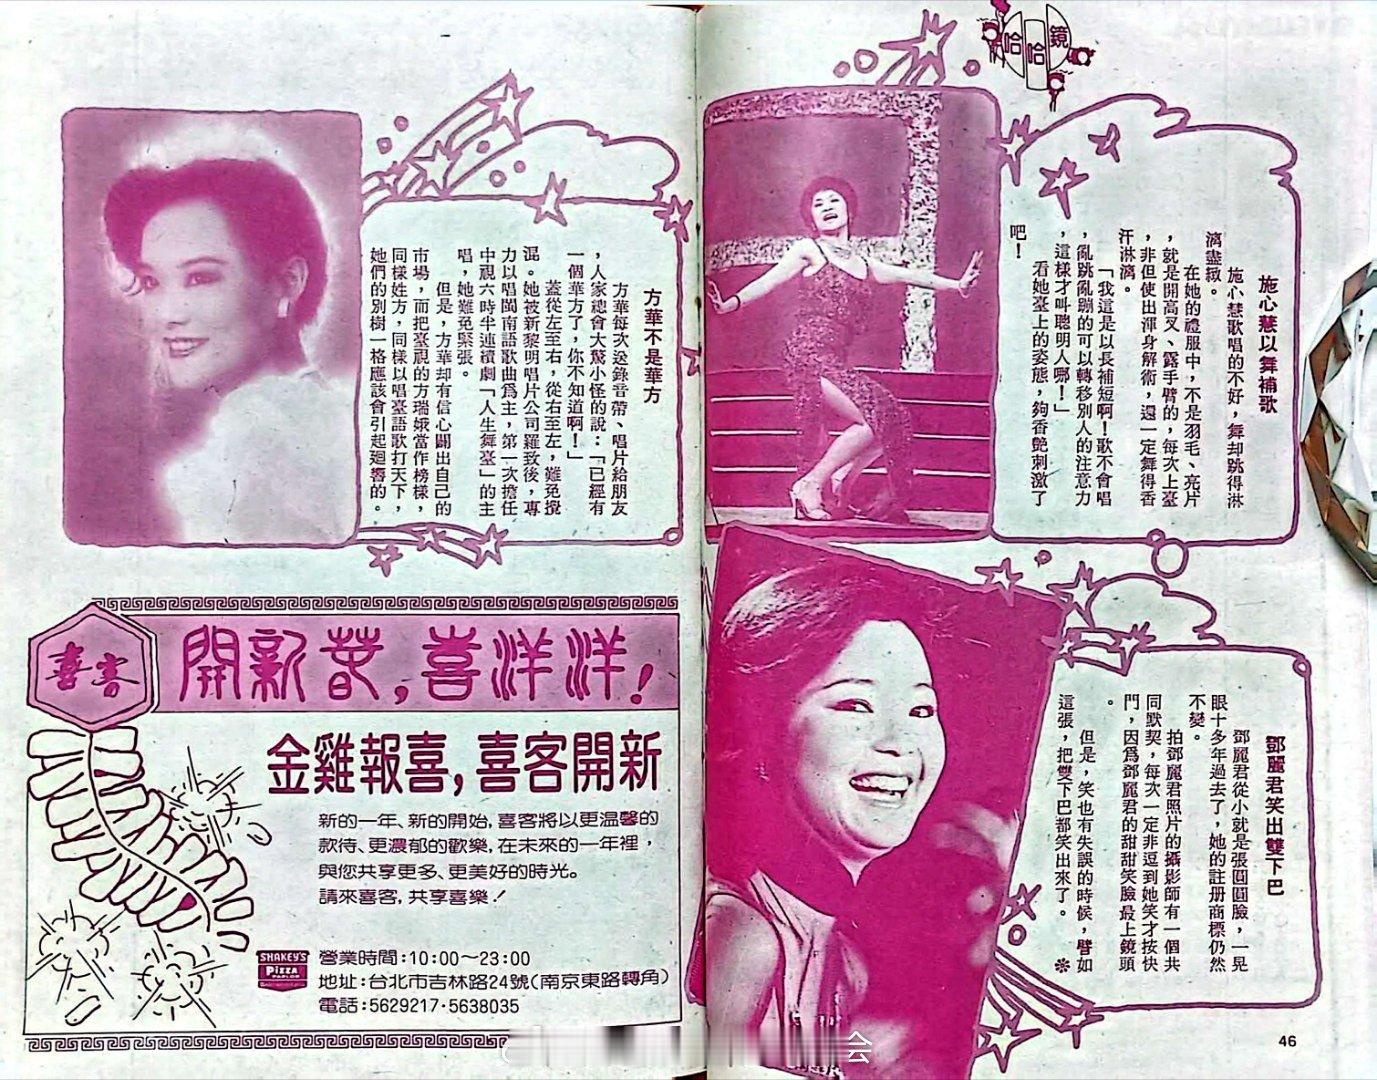 哈哈鏡
施心慧以舞補歌
施心慧歌唱的不好，舞却跳得淋
漓盡緻。
在她的禮服中，不是羽毛、亮片
，就是開高叉、露手臂的，每次上臺
，非但使出渾身解術，還一定舞得香
汗淋漓。
「我這是以長補短啊！歌不會唱
，亂跳亂蹦的可以轉移別人的注意力
，這樣才叫聰明人哪！」
看她臺上的姿態，夠香艷刺激了
吧！
鄧麗君笑出雙下巴
鄧麗君從小就是張圓圓臉，一晃
眼十多年過去了，她的註册商標仍然
不變。
拍鄧麗君照片的攝影師有一個共
同默契，每次一定非逗到她笑才按快
門，因爲鄧麗君的甜甜笑臉最上鏡頭
。
但是，笑也有失誤的時候，譬如
這張，把雙下巴都笑出來了。
46
方華不是華方
方華每次送錄音帶、唱片給朋友
，人家總會大驚小怪的說：「已經有
一個華方了，你不知道啊！」
蓋從左至右，從右至左，難免攪
混。她被新黎明唱片公司羅致後，專
力以唱閩南語歌曲爲主，第一次擔任
中視六時半連續劇「人生舞臺」的主
唱，她難免緊張。
但是，方華却有信心闖出自己的
市場，而把臺視的方瑞娥當作榜樣，
同樣姓方，同樣以唱臺語歌打天下，
她們的別樹一格應該會引起廻響的。
喜客
開新春，喜洋洋！
金雞報喜，喜客開新
新的一年、新的開始，喜客將以更溫馨的
款待、更濃郁的歡樂，在未來的一年裡，
與您共享更多、更美好的時光。
請來喜客，共享喜樂！
SHAKEY'S
PIZZA
PARLOR
營業時間：10:00～23:00
地址：台北市吉林路24號（南京東路轉角）
電話：5629217·5638035
会